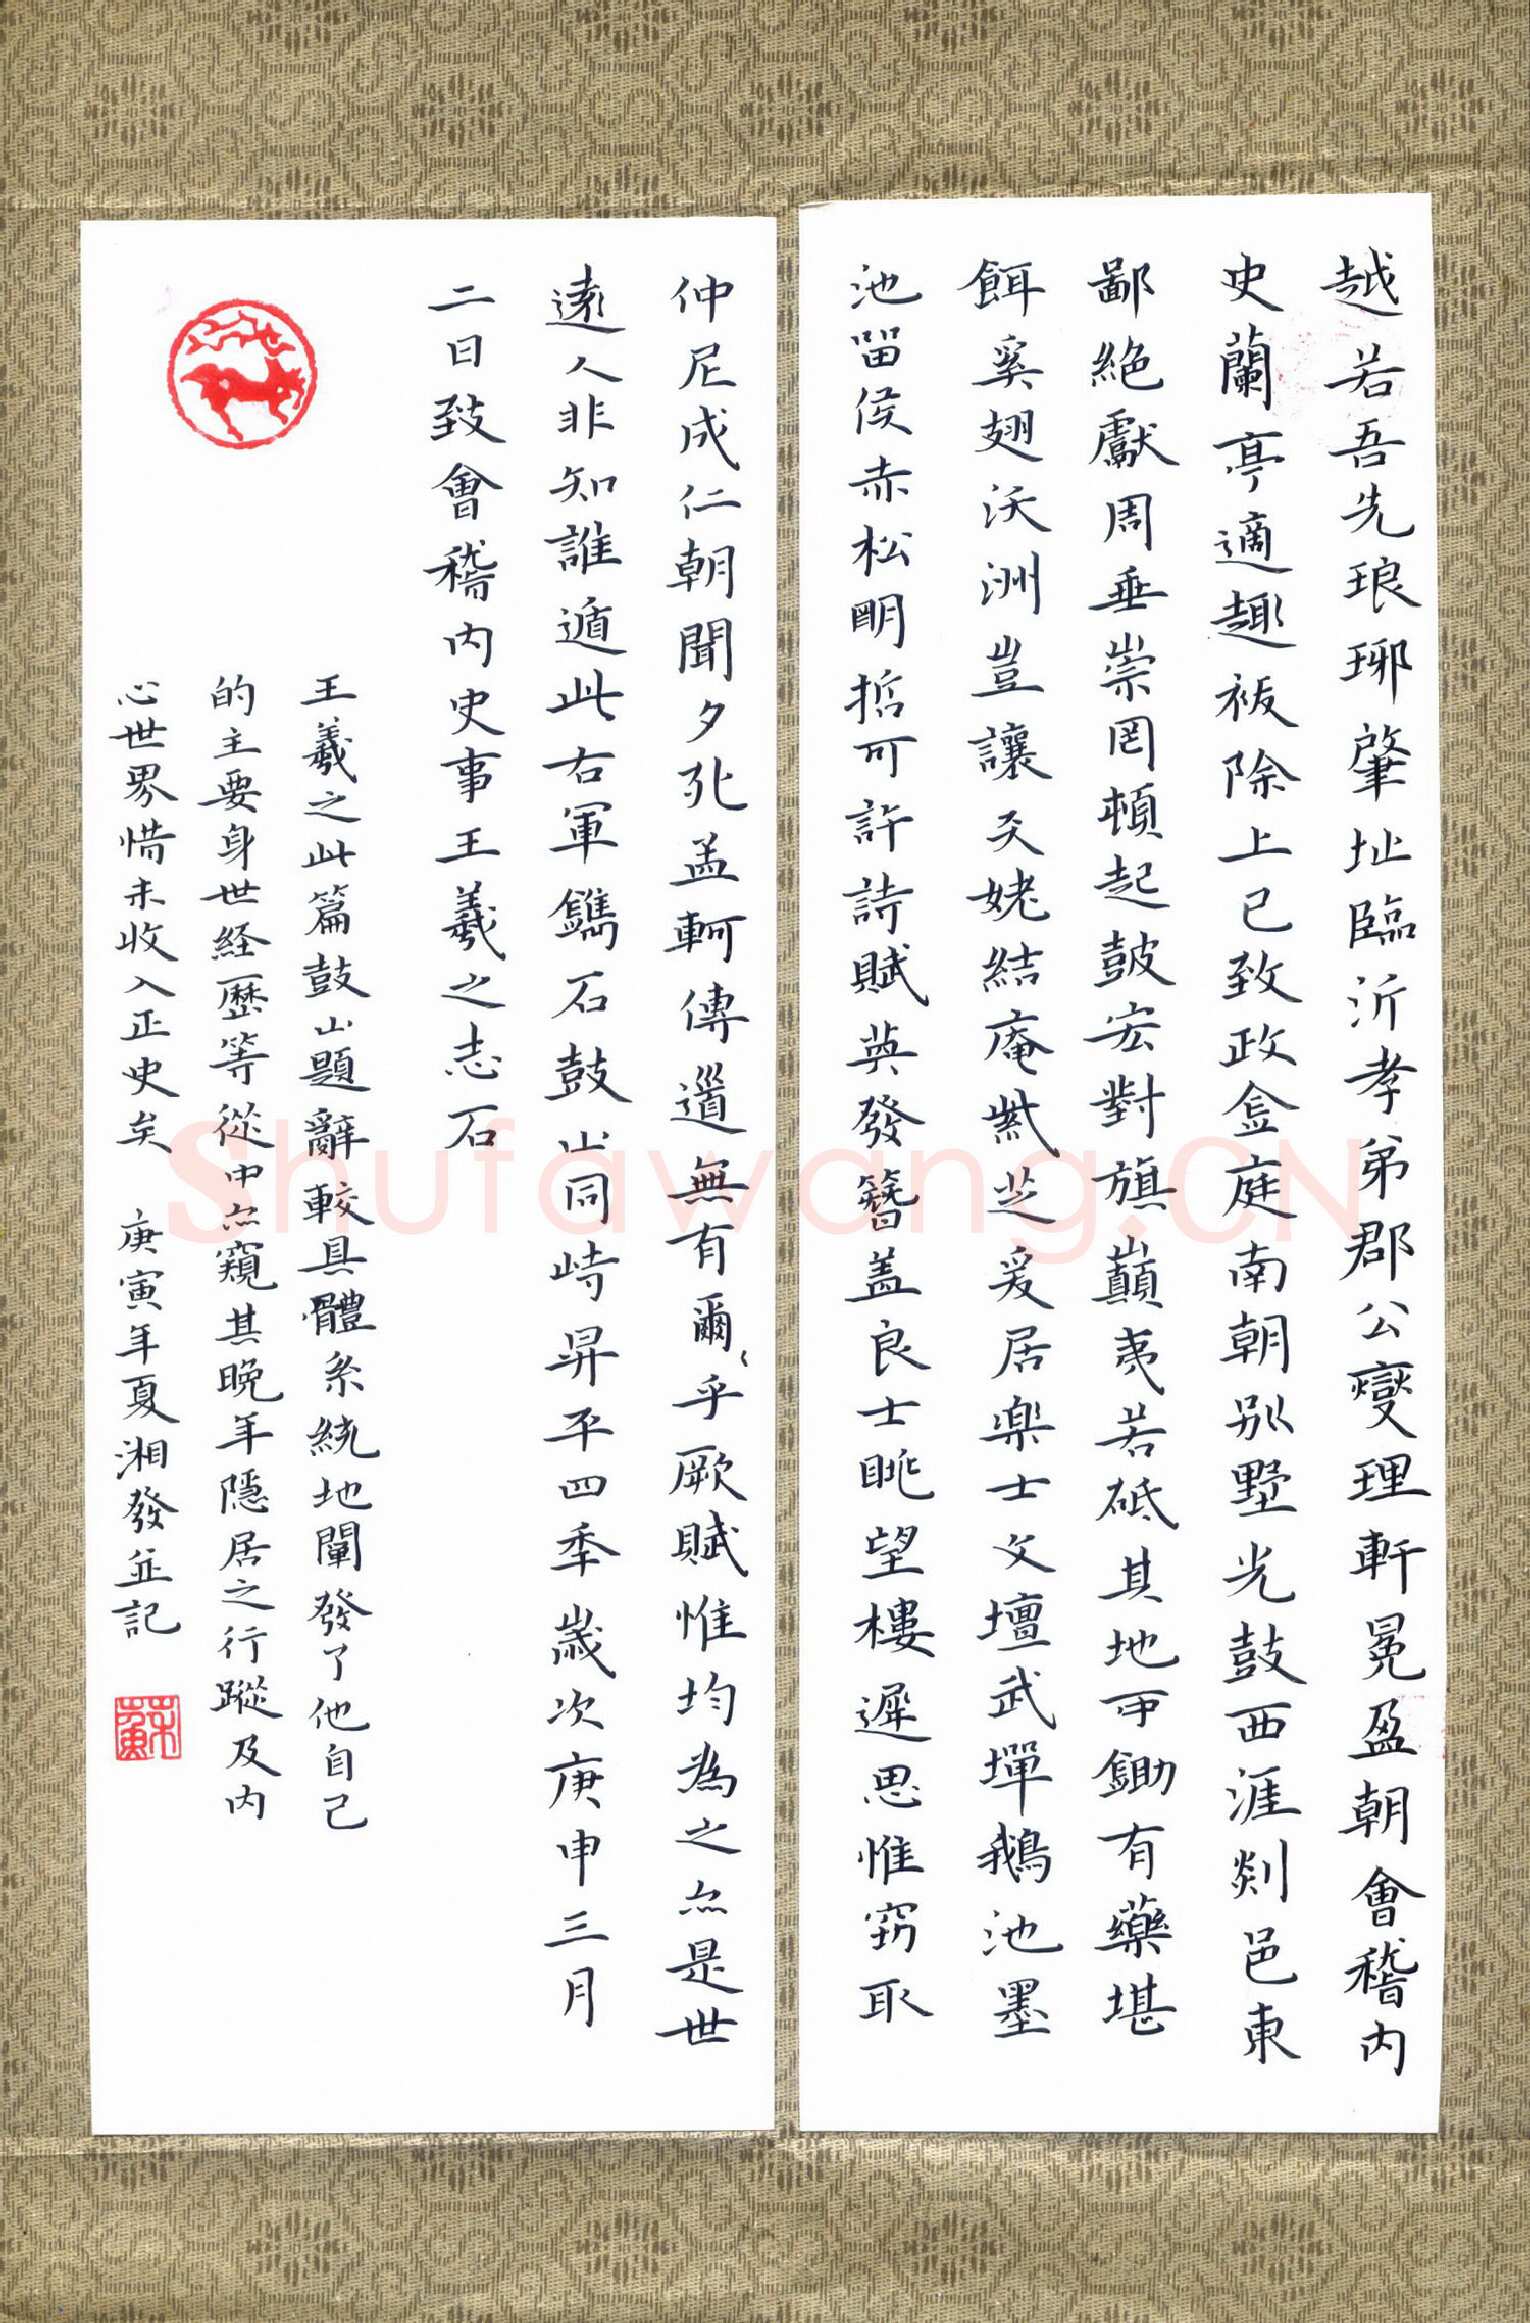 越若吾先琅琊肇址臨沂孝弟郡公燮理軒冕盈朝會稽內
史蘭亭適趣祓除上巳致政金庭南朝別墅光鼓西涯剡邑東
鄙絶獻周垂崇罔頓起鼓宏對旗巔夷若砥其地可鋤有藥堪
餌奚翅沃洲豈讓天姥結庵紫芝爰居樂士文壇武墠鵝池墨
池留侯赤松明哲可許詩賦英發簪盖良士眺望樓遲思惟窃取
仲尼成仁朝聞夕死孟軻傳道無有爾乎厥賦惟均為之亦是世
遠人非知誰遁此右軍鐫石鼓山同峙昇平四年歲次庚申三月
二日致會稽內史事王羲之志石
王羲之此篇鼓山題辭較具體系統地闡發了他自己
的主要身世经歷等從中亦窺其晚年隱居之行蹤及内
心世界惜未收入正史矣 庚寅年夏湘發並記
蘇
Shufawang.CN